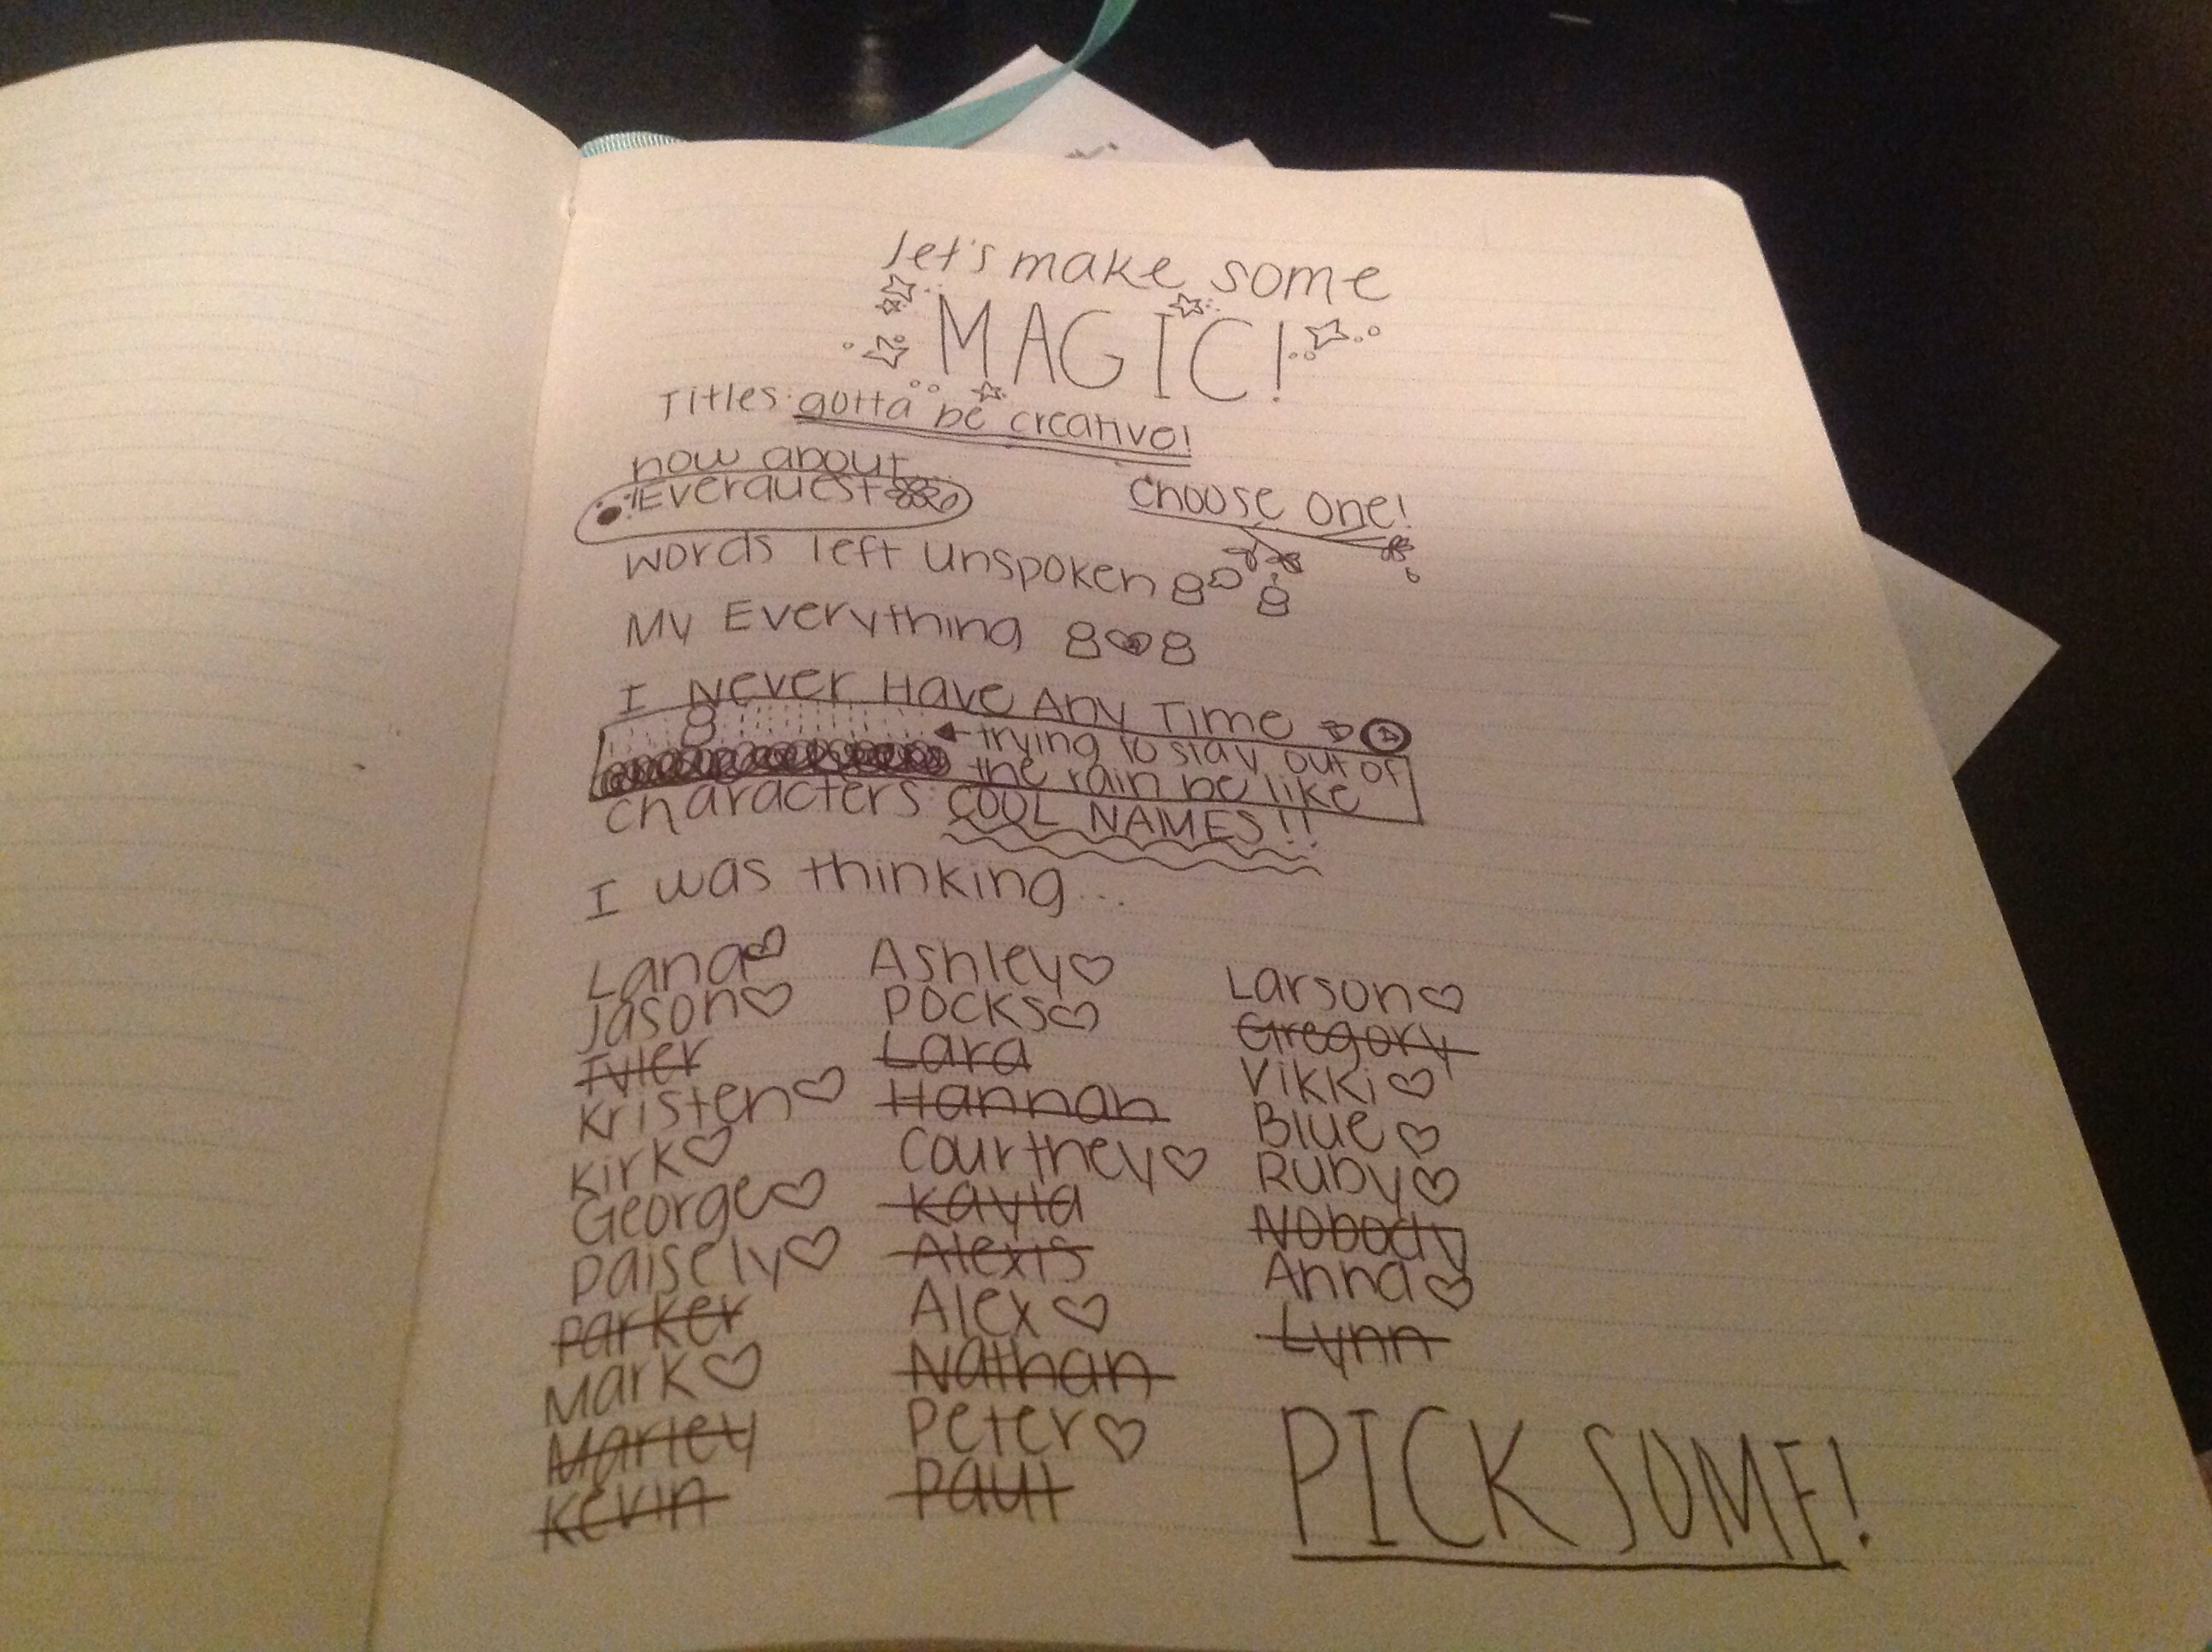 let's make some
MAGIC!
Titles: gotta be creative!
how about...
Everquest
choose one!
words left unspoken
My Everything
I Never Have Any Time
trying to stay out of
the rain be like
characters: COOL NAMES!!
I was thinking...
Lana
Jason
Tyler
Kristen
Kirk
George
Paisely
Parker
Mark
Marley
Kevin
Ashley
Pocks
Lara
Hannah
Courtney
Kayla
Alexis
Alex
Nathan
Peter
Paul
Larson
Gregory
Vikki
Blue
Ruby
Nobody
Anna
Lynn
PICK SOME!